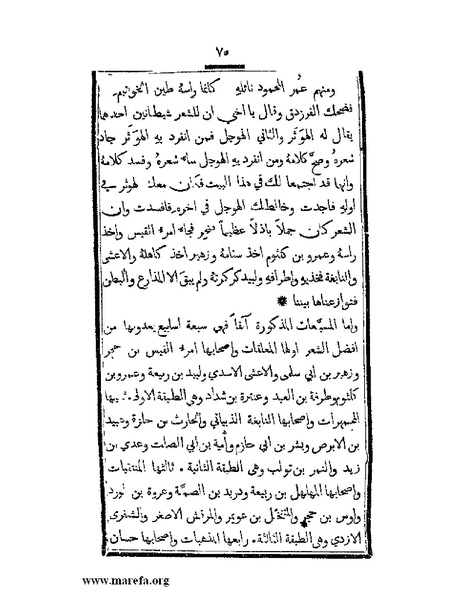 ٧٥
ومنهم عُمر المحمود نائله كانما راسه طين الخواتيم
فضحك الفرزدق وقال يا اخي ان للشعر شيطانين احدهما
يقال له الهوبر والثاني الهوجل فمن انفرد به الهوبر جاد
شعره وصحَّ كلامه ومن انفرد به الهوجل ساء شعره وفسد كلامه
وانها قد اجتمعا لك في هذا البيت فكان معك الهوبر في
اوله فاجدت وخالطك الهوجل في اخره فافسدت وان
الشعر كان جملاً باذلاً عظيماً نحر فجاء امرء القيس واخذ
راسه وعمرو بن كلثوم اخذ سنامه وزهير اخذ كاهله والاعشى
والنابغة فخذيه واطرافه ولبيد كركرته ولم يبق الا المذارع والبطن
فتوازعناها بيننا *
واما المسبعات المذكورة آنفاً فهي سبعة اسابيع يعدونها من
افضل الشعر اولها المعلقات واصحابها امرء القيس بن حجر
وزهير بن ابي سلمى والاعشى الاسدي ولبيد بن ربيعة وعمرو بن
كلثوم وطرفة بن العبد وعنترة بن شداد وهي الطبقة الاولى ثانيها
المجمهرات واصحابها النابغة الذبياني والحارث بن حلزة وعبيد
بن الابرص وبشر بن ابي حازم وأمية بن ابي الصلت وعدي بن
زيد والنمر بن تولب وهي الطبقة الثانية. ثالثها المنتقيات
واصحابها المهلهل بن ربيعة ودريد بن الصمَّة وعروة بن الورد
واوس بن حجر والمتنخل بن عويمر والمرقش الاصغر والشنفرى
الازدي وهي الطبقة الثالثة. رابعها المذهبات واصحابها حسان
www.marefa.org